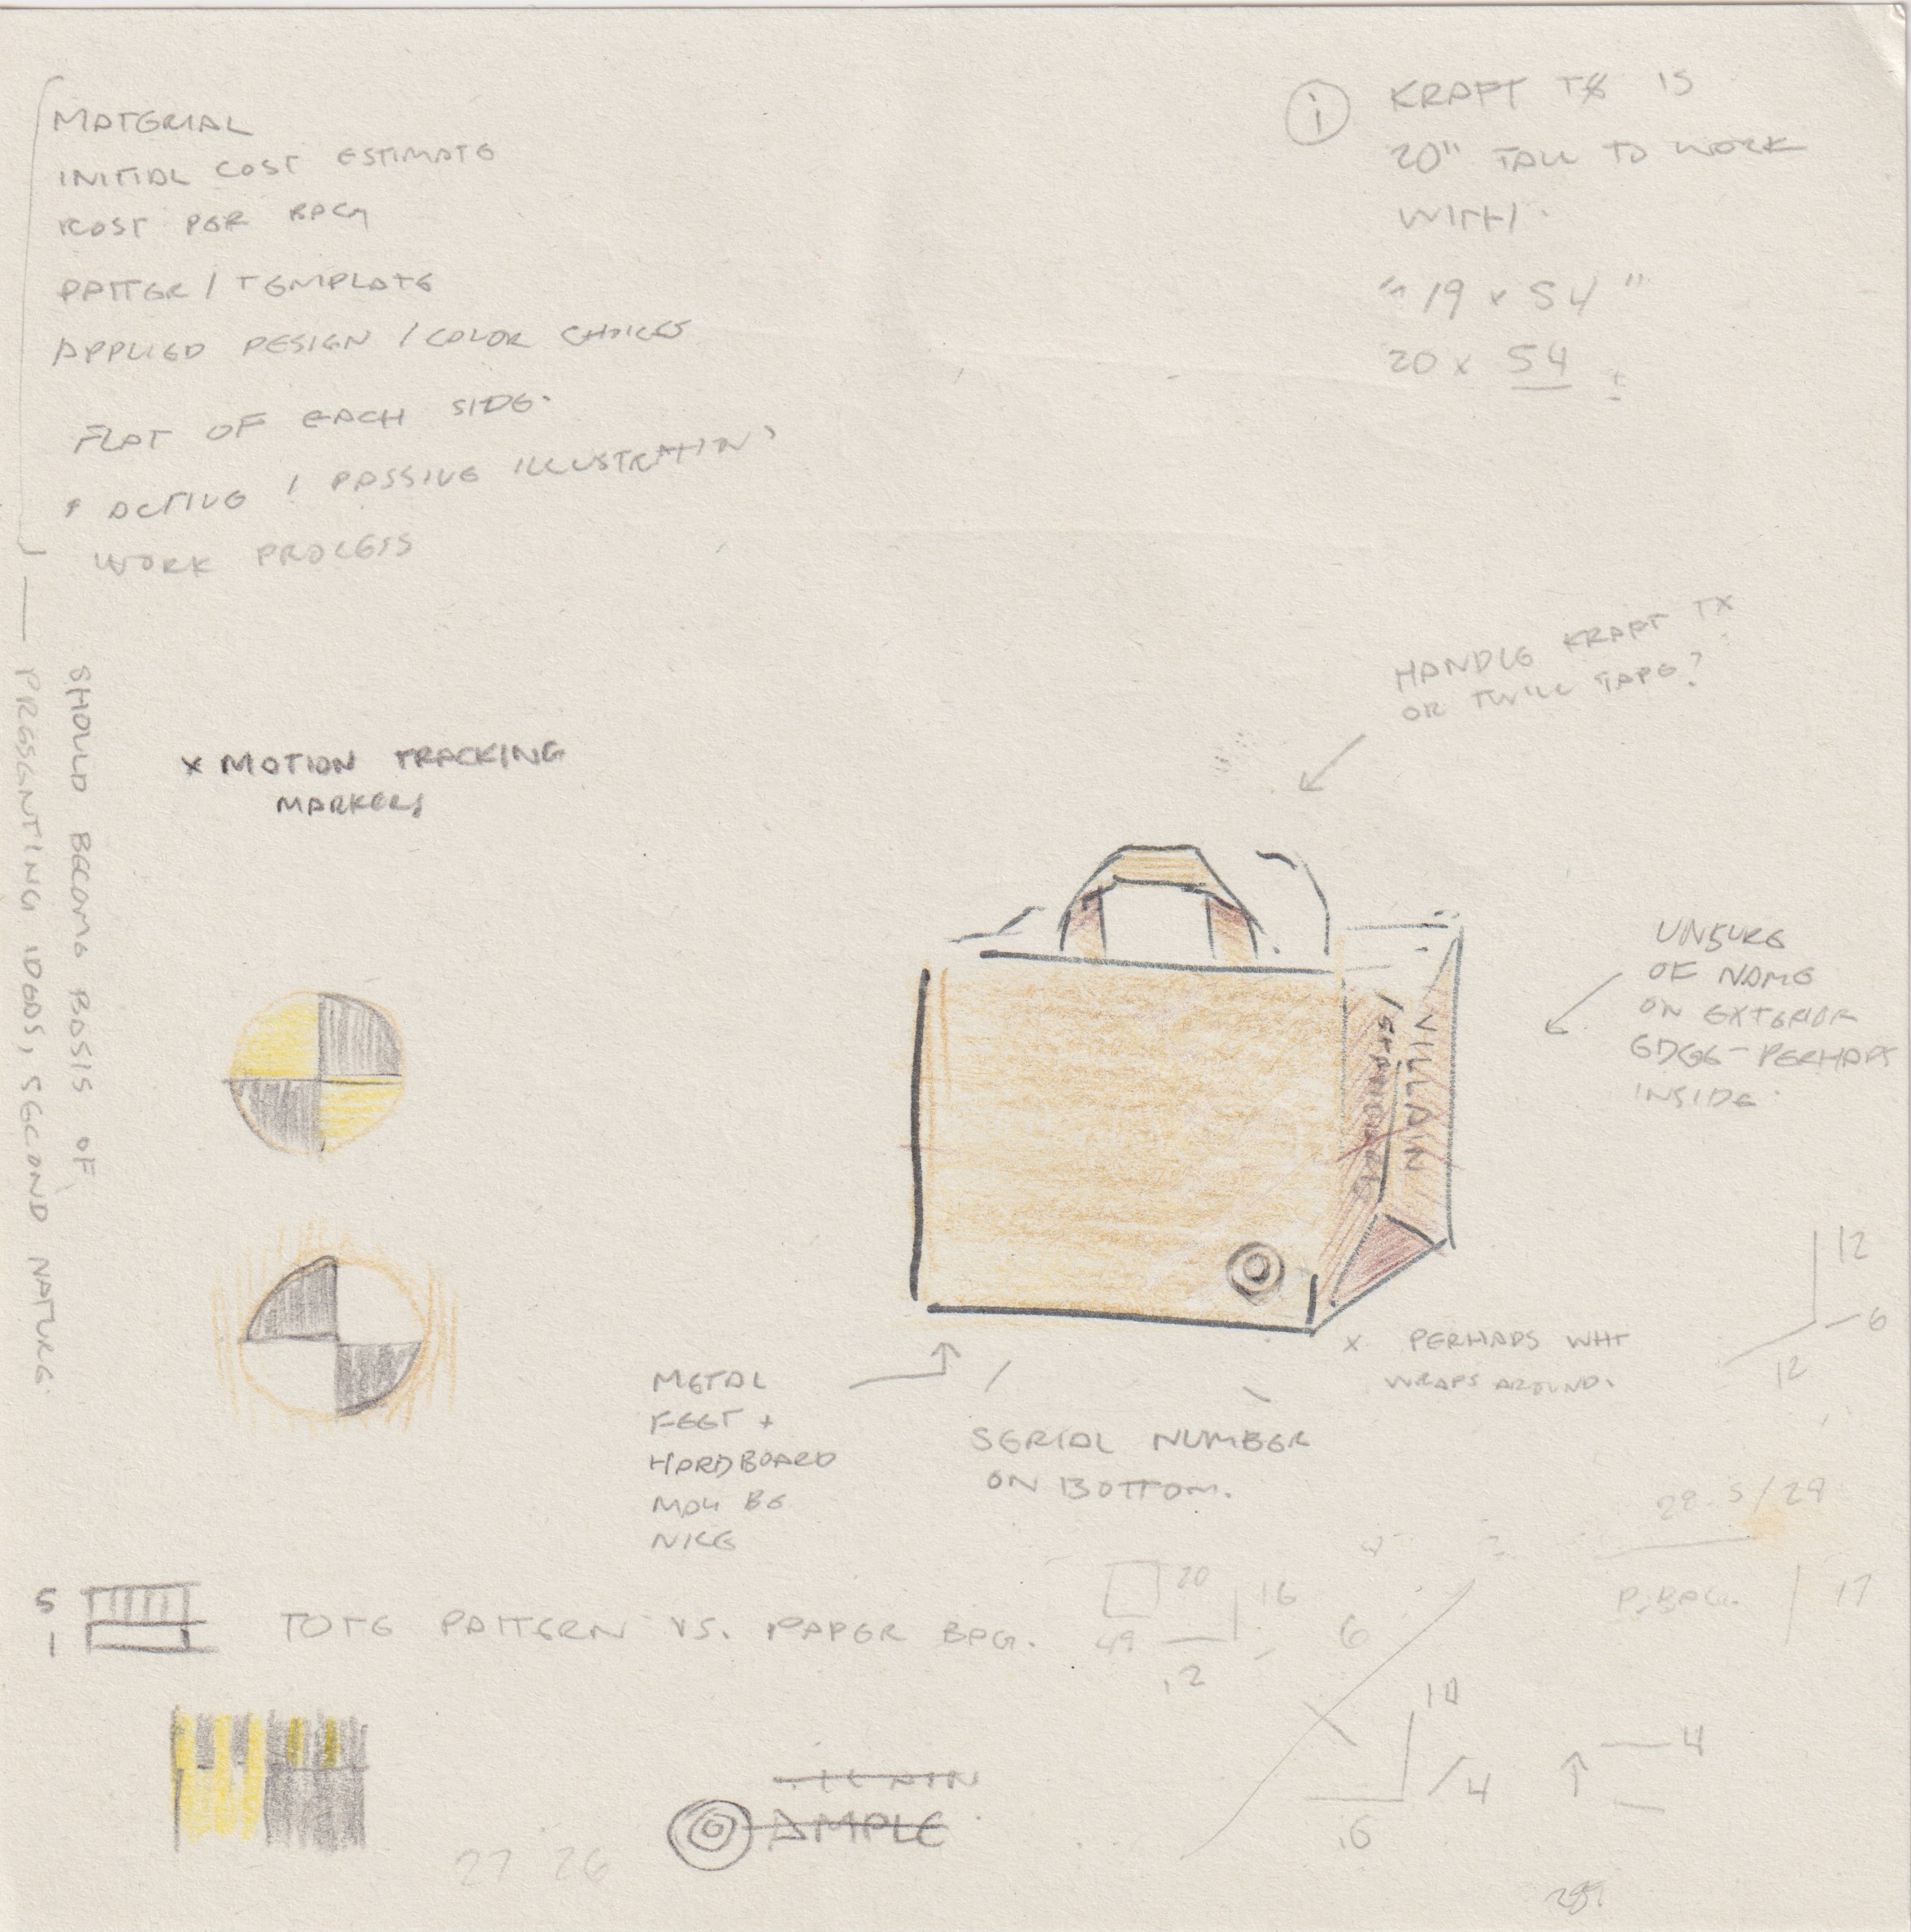 MATERIAL
INITIAL COST ESTIMATE
COST PER BAG
PATTER / TEMPLATE
APPLIED DESIGN / COLOR CHOICES
FLAT OF EACH SIDE.
ACTIVE / PASSIVE ILLUSTRATIN
WORK PROCESS
SHOULD BECOME BASIS OF
PRESENTING IDEAS, SECOND NATURE.
i
KRAFT TX IS
20" TALL TO WORK
WITH.
"19 x 54"
20 x 54 ±
HANDLE KRAFT TX
OR TWILL TAPE?
x MOTION TRACKING
MARKERS
VILLAIN
UNSURE
OF NAME
ON EXTERIOR
EDGE - PERHAPS
INSIDE.
12
6
12
x PERHAPS WHT
WRAPS AROUND.
METAL
FEET +
HARDBOARD
MAY BE
NICE
SERIAL NUMBER
ON BOTTOM.
28.5/29
P. BAG. 17
5
1
TOTE PATTERN VS. PAPER BAG.
20
49
16
12
6
10
4
16
4
AMPLE
27 26